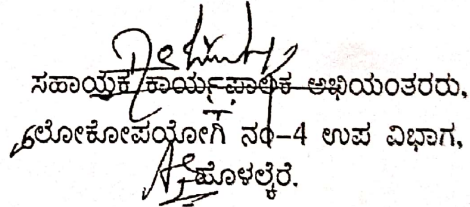 ಸಹಾಯಕ ಕಾರ್ಯಪಾಲಕ ಅಭಿಯಂತರರು,
ಲೋಕೋಪಯೋಗಿ ನಂ-4 ಉಪ ವಿಭಾಗ,
ಹೊಳಲ್ಕೆರೆ.